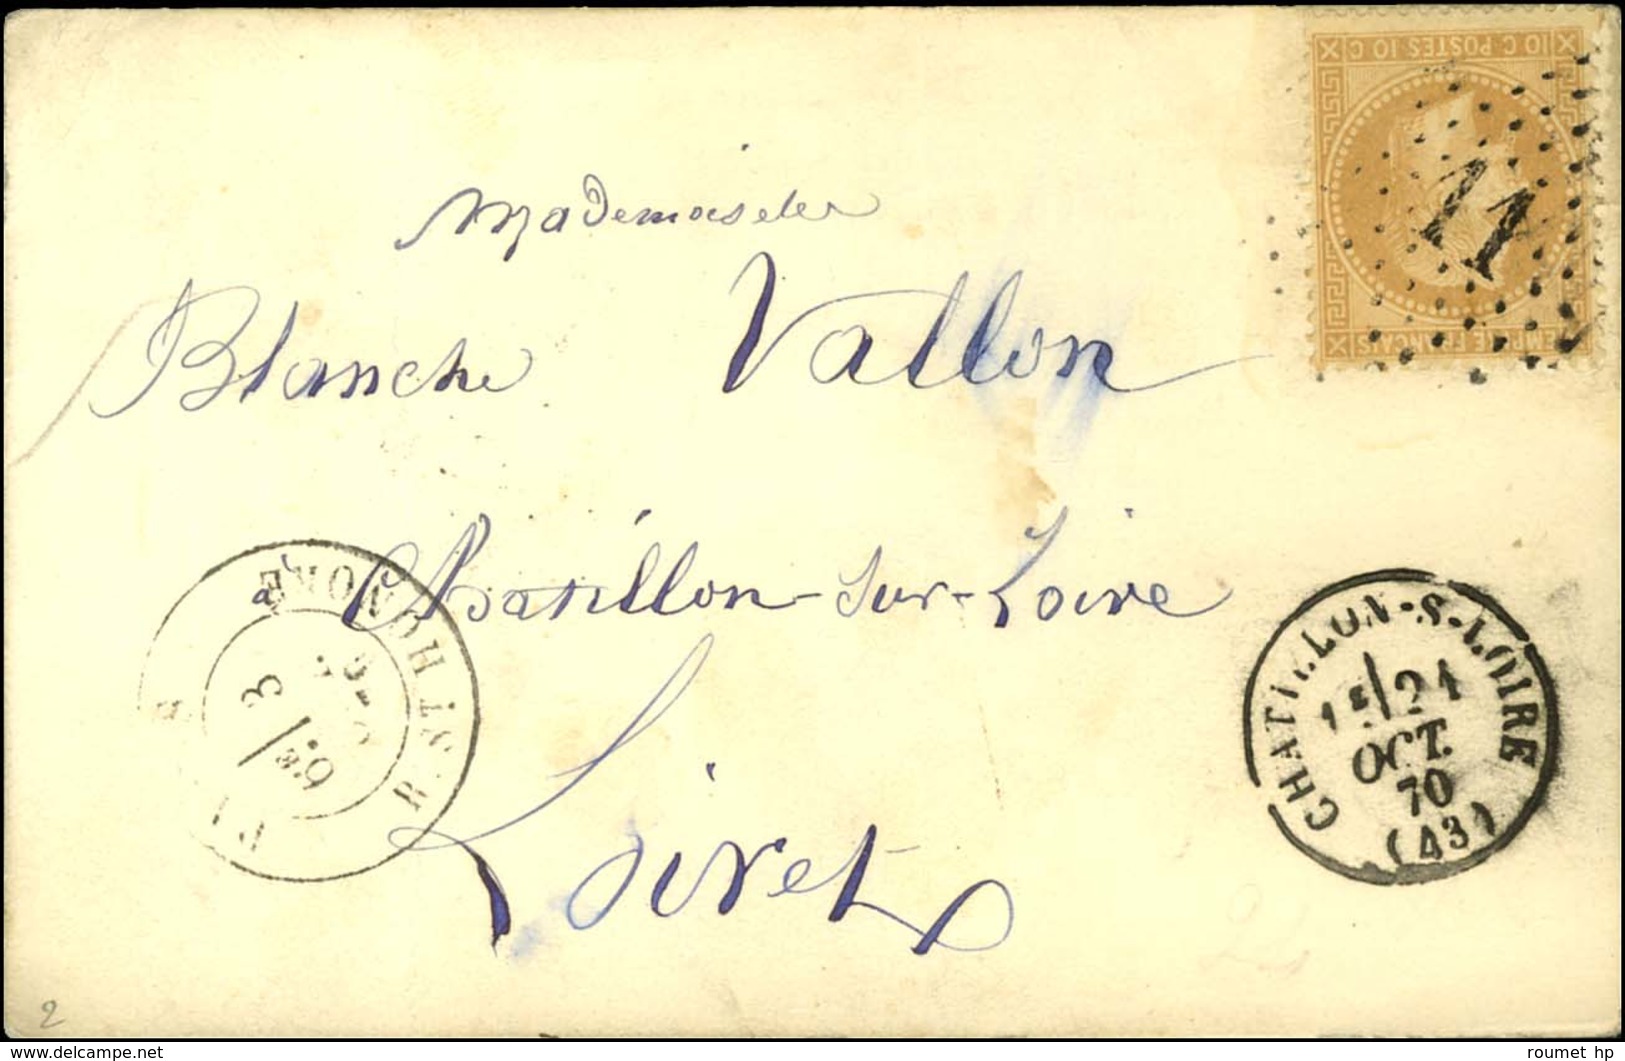 10 C POSTES 10 C
EMPIRE FRANÇAIS
11
Mademoiselle
Blanche Vallon
à Chatillon-sur-Loire
Loiret
R. ST HONORÉ
6E/ 3
CHATILLON-S-LOIRE
1E/ 21
OCT.
70
(43)
2
www.delcampe.net
roumet hp